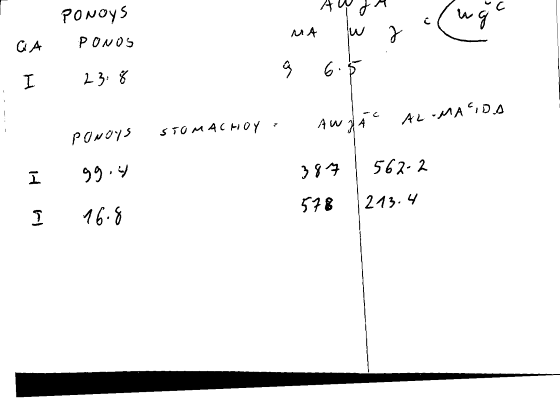 PONOYS AWJĀ
GA PONOS MA W J c (wǧc
I 23.8 9 6.5
PONOYS STOMACHOY = AWJĀc AL-MAcIDA
I 99.4 387 562.2
I 16.8 578 213.4